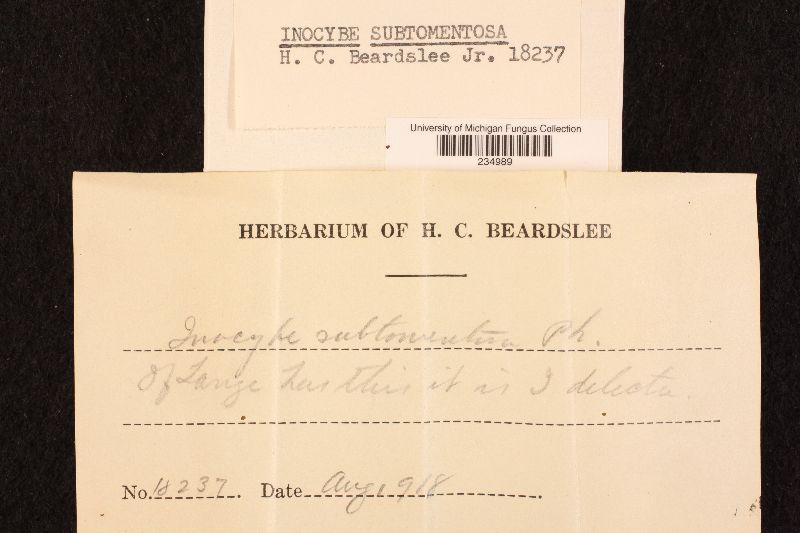 INOCYBE SUBTOMENTOSA
H. C. Beardslee Jr. 18237
University of Michigan Fungus Collection
234989
HERBARIUM OF H. C. BEARDSLEE
Inocybe subtomentosa Pk.
If Lange has this it is I delecta.
No. 18237. Date Aug 1918